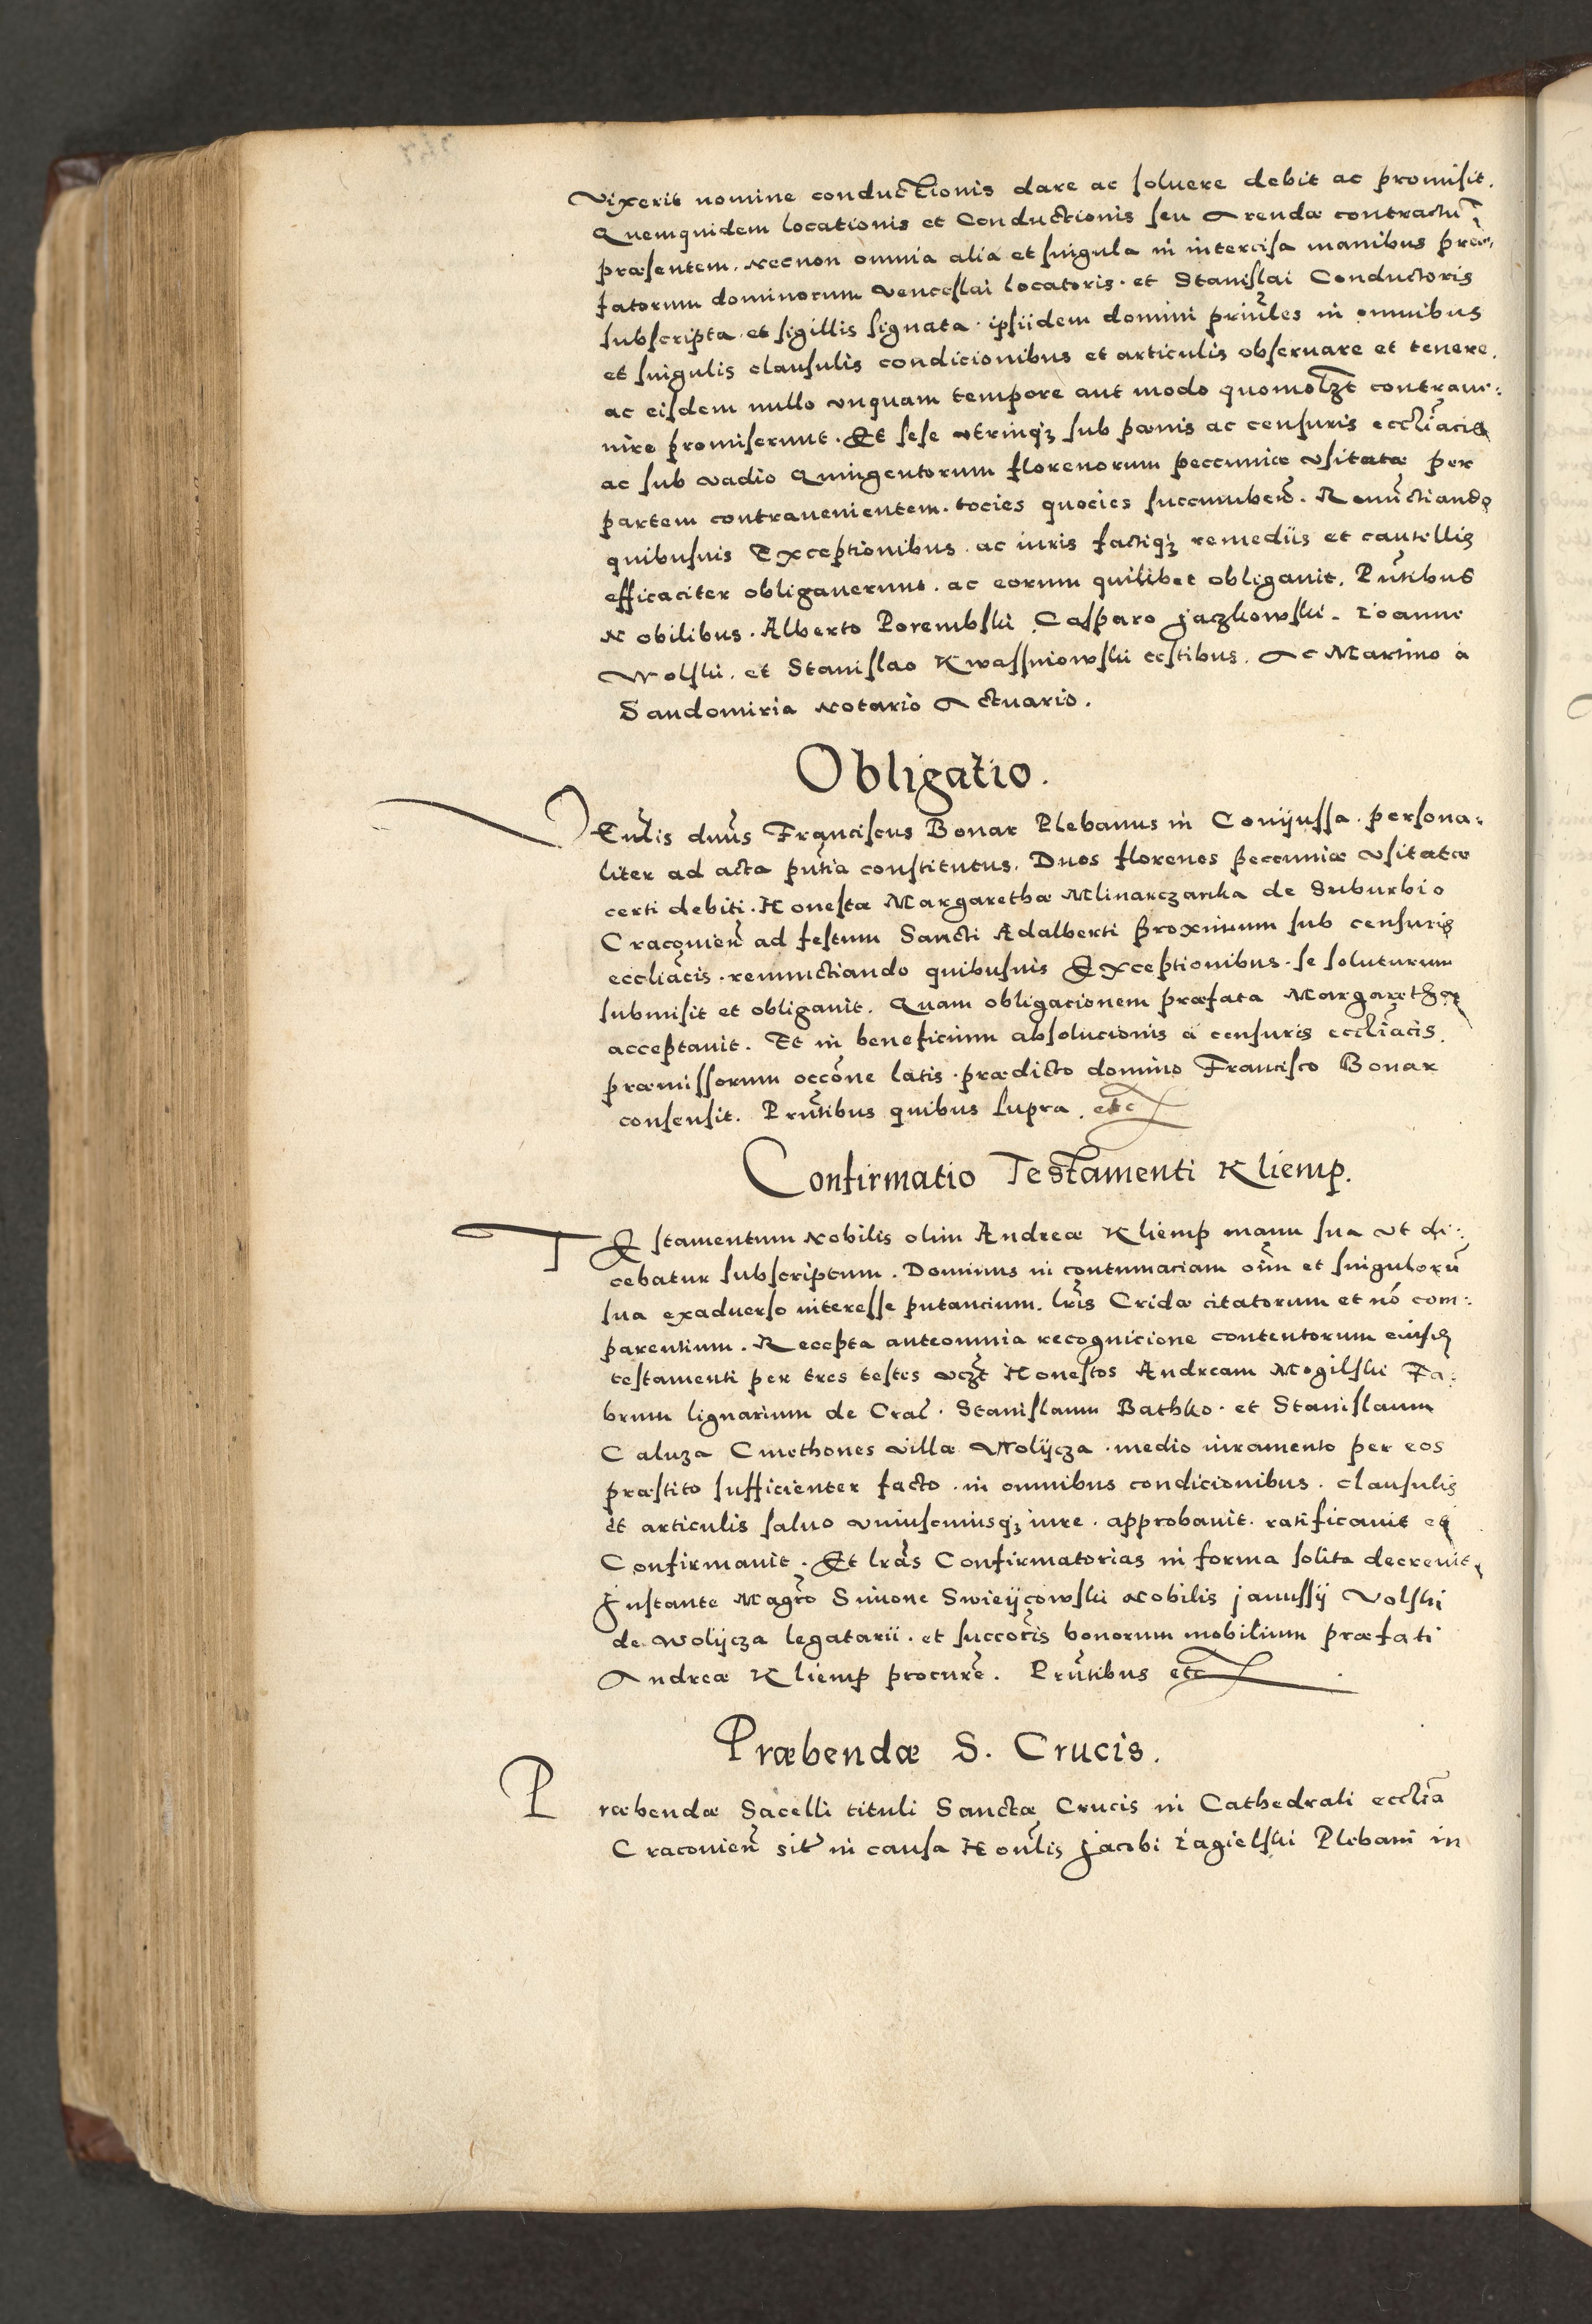 vixerit nomine conductionis dare ac soluere debit ac promisit.
Quemquidem locationis et Conductionis seu Arendæ contractũ
præsentem. Necnon omnia alia et singula in intercisa manibus præ-
fatorum dominorum Venceslai locatoris. et Stanislai Conductoris
subscripta. et sigillis signata. ipsiidem domini prin̄les in omnibus
et singulis clausulis condicionibus et articulis obseruare et tenere.
ac eisdem nullo vnquam tempore aut modo quomol3t contraue:
nire promiserunt. Et sese vtrinq3 sub pœnis ac censuris eccl̄iacis
ac sub vadio Quingentorum florenorum peccuniæ vsitatæ per
partem contrauenientem. tocies quocies succumbeñ. Renũctiando
quibusuis Exceptionibus. ac iuris factiq3 remediis et cautellis
efficaciter obligauerunt. ac eorum quilibet obligauit. Pñtibus
Nobilibus. Alberto Porembski Casparo Jaczkowski. Ioanne
Wolski. et Stanislao Kwassniowski testibus. Ac Martino à
Sandomiria Notario Actuario.
Obligatio.
VEnl̃is dnũs Franciscus Bonar Plebanus in Conijussa. persona:
liter ad acta pñtia constitutus. Duos florenos peccuniæ vsitatæ
certi debiti. Honestæ Margarethæ Mlinarczanka de Suburbio
Cracouieñ ad festum Sancti Adalberti proximum sub censuris
eccl̄iacis. renunctiando quibusuis Exceptionibus. se soluturum
submisit et obligauit. Quam obligacionem præfata Margaretha
acceptauit. Et in beneficium absolucionis à censuris eccl̄iacis
præmissorum occõne latis. prædicto domino Francisco Bonar
consensit. Prñtibus quibus supra. etc
Confirmatio Testamenti Kliemp.
TEstamentum Nobilis olim Andreæ Kliemp manu sua vt di:
cebatur subscriptum. Dominus in contumaciam oĩm et singulorũ
sua exaduerso interesse putancium. lr̃is Cridæ citatorum et nõ com:
parentium. Recepta anteomnia recognicione contentorum eiusd
testamenti per tres testes vc3t Honestos Andream Mogilski Fa:
brum lignarium de Crac̃. Stanislaum Bathko. et Stanislaum
Caluza Cmethones villæ Wolijcza. medio iuramento per eos
præstito sufficienter facto. in omnibus condicionibus. clausulis
et articulis saluo vniuscuiusq3 iure. approbauit. ratificauit et
Confirmauit. Et lr̃as Confirmatorias in forma solita decreuit.
Instante Magrõ Simone Swieijcowski Nobilis Janussij Volski
de Wolijcza legatarii. et succoris̃ bonorum mobilium præfati
Andreæ Kliemp procurẽ. Prñtibus etc
Præbendæ S. Crucis.
Præbendæ Sacelli tituli Sanctæ Crucis in Cathedrali eccl̃ia
Cracouieñ sit̃ in causa Honl̃is Jacobi Iagielski Plebani in